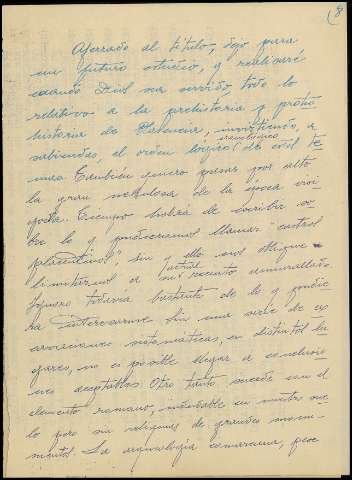 (8
Aferrado al título, dejo para
un futuro estudio, y realizaré
cuando Dios sea servido, todo lo
relativo a la prehistoria y proto
historia de Plasencia, invirtiendo, a
sabiendas, el orden lógico de este te
ma. También quiero pasar por alto
la gran nebulosa de la época visi
goda. Tiempo habrá de escribir so
bre lo q pudiéramos llamar "castros
placentinos", sin q ello nos obligue a
limitarnos al actual recinto amurallado.
Ignoro todavía bastante de lo q pudie
ra interesarme. Sin una serie de ex
cavaciones sistemáticas, en distintos lu
gares, no es posible llegar a conclusio
nes aceptables. Otro tanto sucede con el
elemento romano, indudable en nuestro sue
lo pero sin vestigios de grandes monu
mentos. La arqueología comarcana, poco